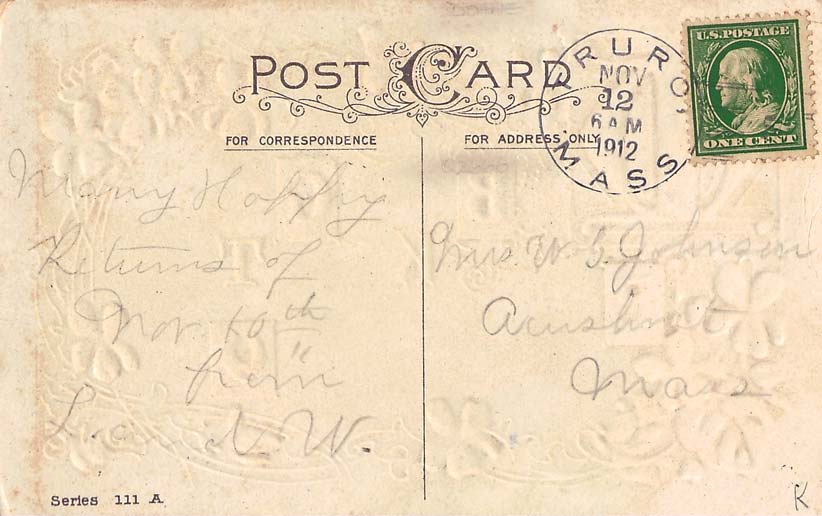 POST CARD
FOR CORRESPONDENCE
FOR ADDRESS ONLY
TRURO
NOV
12
6 AM
1912
MASS.
U.S. POSTAGE
ONE CENT
Many Happy
Returns of
Nov. 10th
from
W.
Mrs W. G. Johnson
Acushnet
Mass
Series 111 A
K